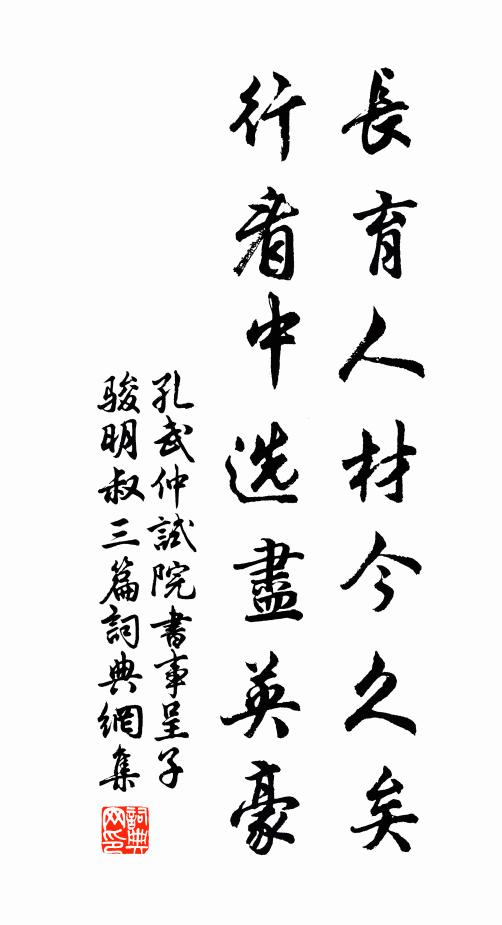 長育人材今久矣
行看中选盡英豪
孔武仲試院書事呈子
骏明叔三篇詞典網集
詞典
网印